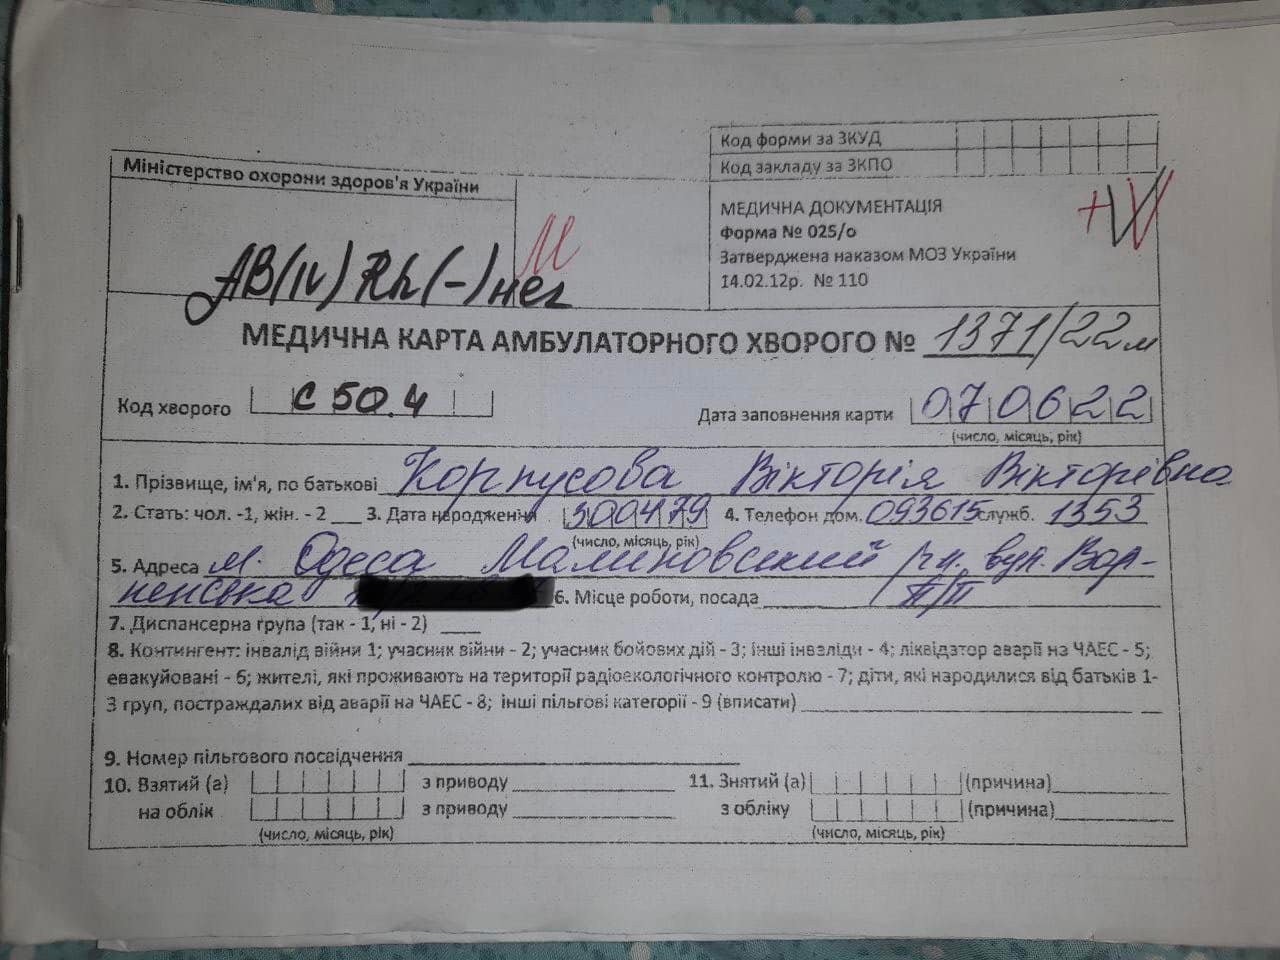 Код форми за ЗКУД
Код закладу за ЗКПО
Міністерство охорони здоров'я України
МЕДИЧНА ДОКУМЕНТАЦІЯ
Форма № 025/о
Затверджена наказом МОЗ України
14.02.12р. № 110
М
+V
AB(IV) Rh(-) нег
МЕДИЧНА КАРТА АМБУЛАТОРНОГО ХВОРОГО № 1371/22м
Код хворого C 50.4 Дата заповнення карти 070622
(число, місяць, рік)
1. Прізвище, ім'я, по батькові Корпусова Вікторія Вікторівна
2. Стать: чол. -1, жін. - 2 ___ 3. Дата народження 300479 4. Телефон дом. 093615 служб. 1353
(число, місяць, рік)
5. Адреса м. Одеса Малиновський р-н. вул. Вар-
ненська 6. Місце роботи, посада п/п
7. Диспансерна група (так - 1, ні - 2) ___
8. Контингент: інвалід війни 1; учасник війни - 2; учасник бойових дій - 3; інші інваліди - 4; ліквідатор аварії на ЧАЕС - 5;
евакуйовані - 6; жителі, які проживають на території радіоекологічного контролю - 7; діти, які народилися від батьків 1-
3 груп, постраждалих від аварії на ЧАЕС - 8; інші пільгові категорії - 9 (вписати)
9. Номер пільгового посвідчення
10. Взятий (а) з приводу 11. Знятий (а) (причина)
на облік з приводу з обліку (причина)
(число, місяць, рік) (число, місяць, рік)